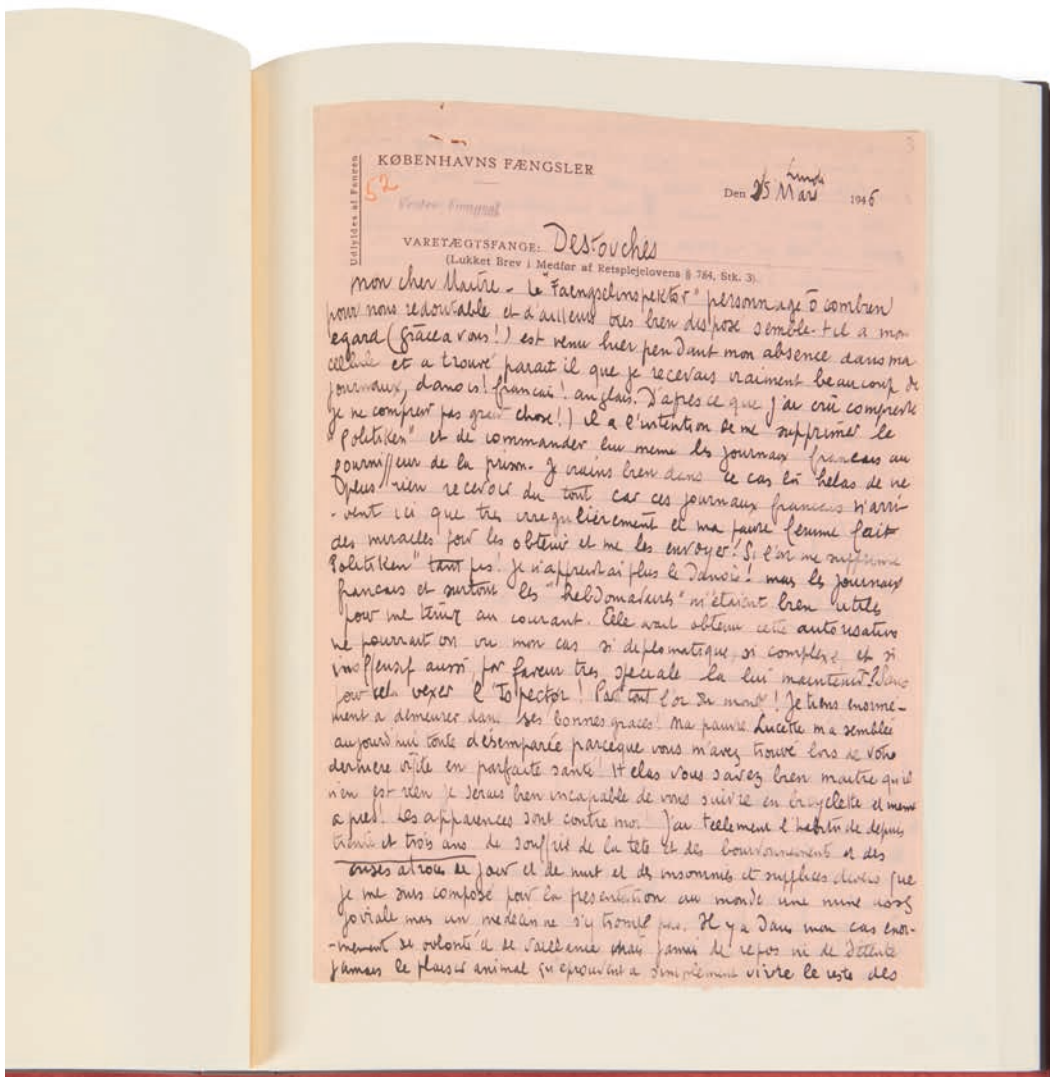 3
KØBENHAVNS FÆNGSLER
Udfyldes af Fangen
52
Vestre Fængsel
Den 25 Lundi Mars 1946
VARETÆGTSFANGE: Destouches
(Lukket Brev i Medfør af Retsplejelovens § 784, Stk. 3).
mon cher Maitre - Le "Faengselinspektor" personnage O combien
pour nous redoutable et d'ailleurs tres bien disposé semble-t-il a mon
egard (grâce a vous!) est venu hier pendant mon absence dans ma
cellule et a trouvé parait il que je recevais vraiment beaucoup de
journaux, danois! francais! anglais. D'apres ce que j'ai crû comprendre
je ne comprend pas grand chose!) il a l'intention de me supprimer le
"Politiken" et de commander lui meme les journaux francais au
fournisseur de la prison. Je crains bien dans ce cas là helas de ne
plus rien recevoir du tout car ces journaux francais n'arri-
-vent ici que tres irregulièrement et ma pauvre femme fait
des miracles pour les obtenir et me les envoyer! Si l'on me supprime
Politiken" tant pis! je n'apprendrai plus le Danois! mais les journaux
francais et surtout les "hebdomadaires" m'étaient bien utiles
pour me tenir au courant. Elle avait obtenu cette autorisation
ne pourrait on vu mon cas si diplomatique, si complexe, et si
inoffensif aussi, par faveur tres speciale la lui maintenir? Sans
pour cela vexer l'Ispector! Pas tout l'or du monde! Je tiens enorme-
ment a demeurer dans ses bonnes graces! Ma pauvre Lucette m'a semblée
aujourd'hui toute désemparée parceque vous m'avez trouvé lors de votre
derniere visite en parfaite santé! Helas vous savez bien maitre qu'il
n'en est rien je serais bien incapable de vous suivre en bicyclette et meme
a pied! Les apparences sont contre moi! J'ai tellement l'habitude depuis
trente et trois ans de souffrir de la tete et des bourdonnements et des
crises atroces de jour et de nuit et des insomnies et supplices divers que
je me suis composé pour la presentation au monde une mine assez
joviale mais un medecin ne s'y trompe pas. Il y a dans mon cas enor-
-mement de volonté et de vaillance mais jamais de repos ni de détente
jamais le plaisir animal qu'eprouvent a simplement vivre le reste des